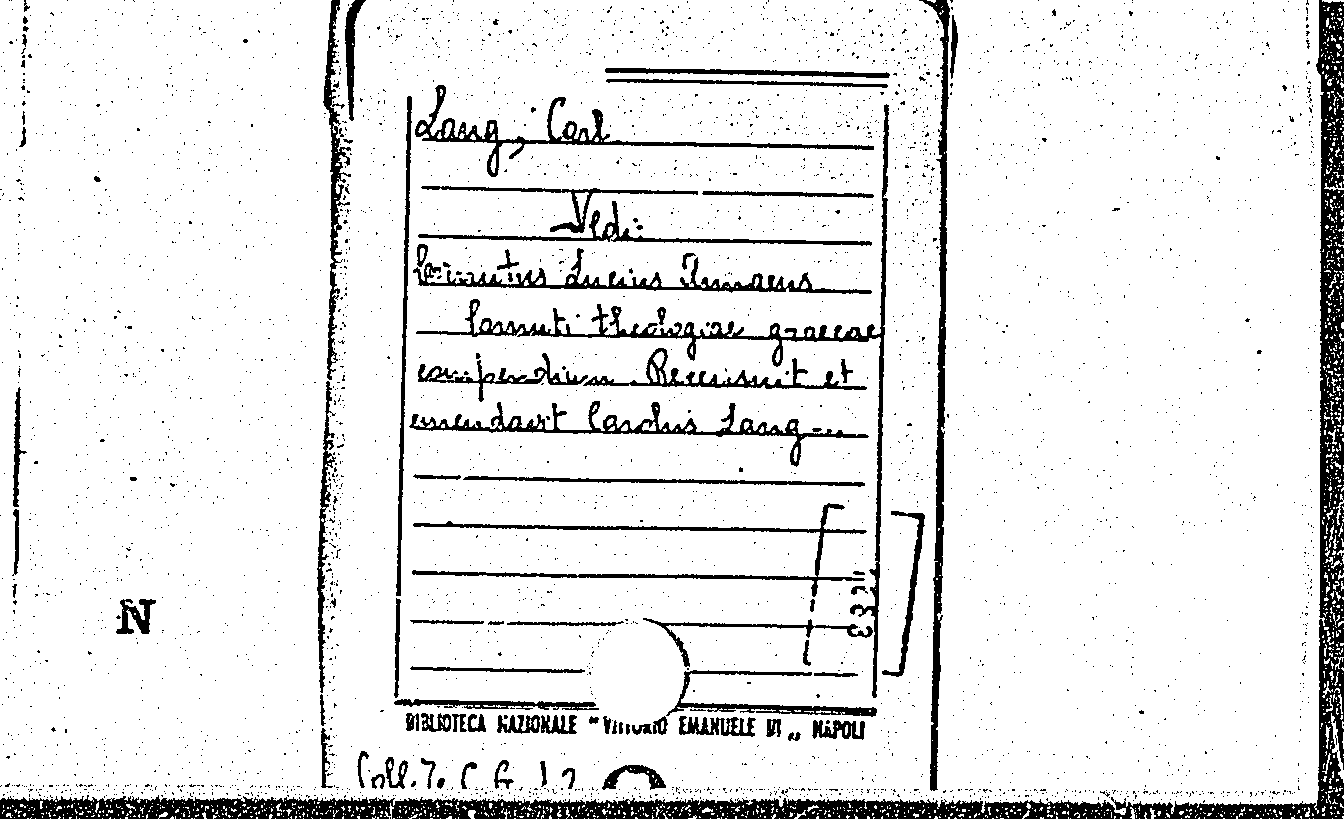 Lang, Carl
Vedi:
Cornutus Lucius Annaeus
Cornuti theologiae graecae
compendium. Recensuit et
emendavit Carolus Lang ...
BIBLIOTECA NAZIONALE "VITTORIO EMANUELE III" NAPOLI
Coll.
N